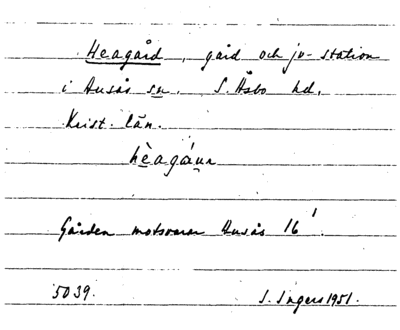 Heagård, gård och jv-station
i Ausås sn. S. Åsbo hd,
Krist. län.
hèagá́ռn
Gården motsvarar Ausås 16¹.
5039. I. Ingers 1951.